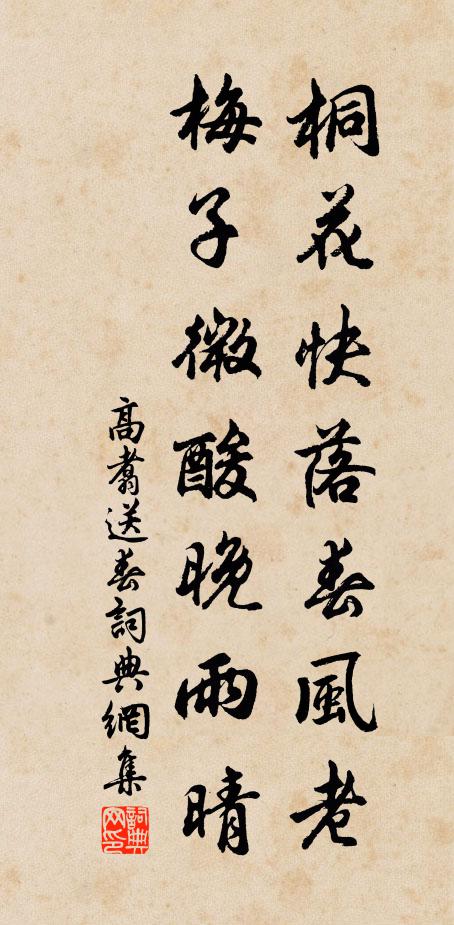 桐花快落春風老
梅子微酸晚雨晴
高翥送春詞典網集
詞典網印